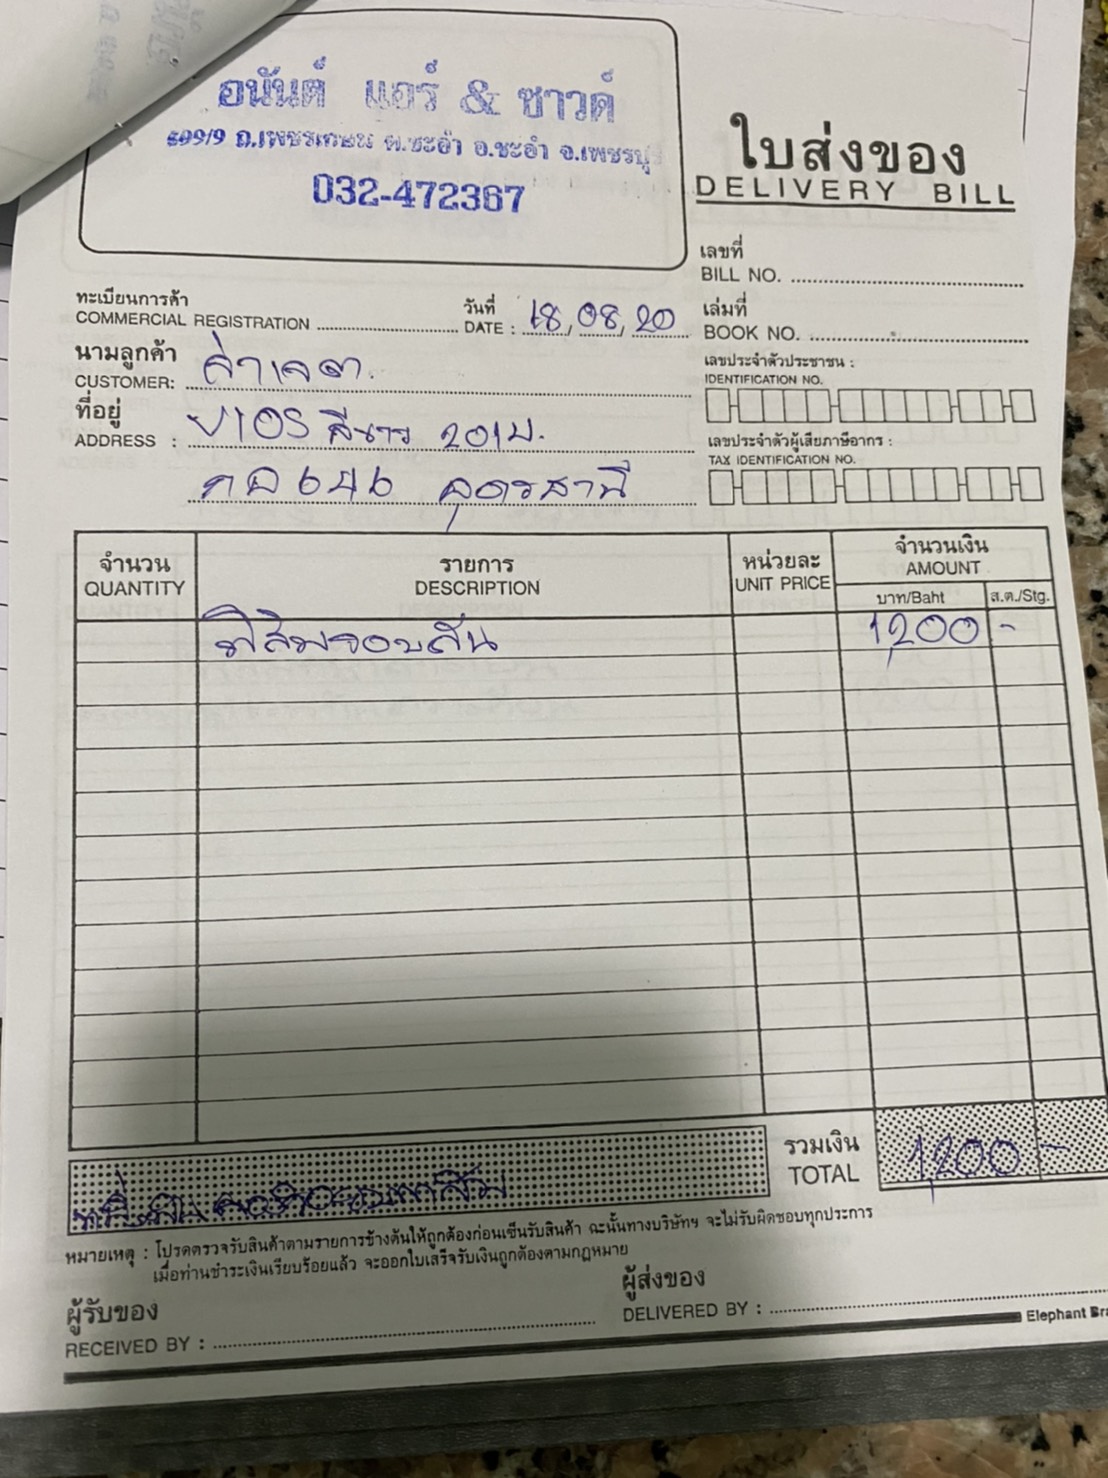 อนันต์ แอร์ & ซาวด์
699/9 ถ.เพชรเกษม ต.ชะอำ อ.ชะอำ จ.เพชรบุรี
032-472367
ใบส่งของ
DELIVERY BILL
เลขที่
BILL NO.
ทะเบียนการค้า
COMMERCIAL REGISTRATION
วันที่
DATE : 18/08/20
เล่มที่
BOOK NO.
นามลูกค้า
CUSTOMER:
เลขประจำตัวประชาชน :
IDENTIFICATION NO.
ที่อยู่
ADDRESS : VIOS สีขาว 2012
เลขประจำตัวผู้เสียภาษีอากร :
TAX IDENTIFICATION NO.
646 อุดรธานี
จำนวน
QUANTITY
รายการ
DESCRIPTION
หน่วยละ
UNIT PRICE
จำนวนเงิน
AMOUNT
บาท/Baht
ส.ต./Stg.
ฟิล์มรอบคัน 1,200 -
รวมเงิน
TOTAL
1,200 -
หมายเหตุ : โปรดตรวจรับสินค้าตามรายการข้างต้นให้ถูกต้องก่อนเซ็นรับสินค้า ฉะนั้นทางบริษัทฯ จะไม่รับผิดชอบทุกประการ
เมื่อท่านชำระเงินเรียบร้อยแล้ว จะออกใบเสร็จรับเงินถูกต้องตามกฎหมาย
ผู้รับของ
RECEIVED BY :
ผู้ส่งของ
DELIVERED BY :
Elephant Bra